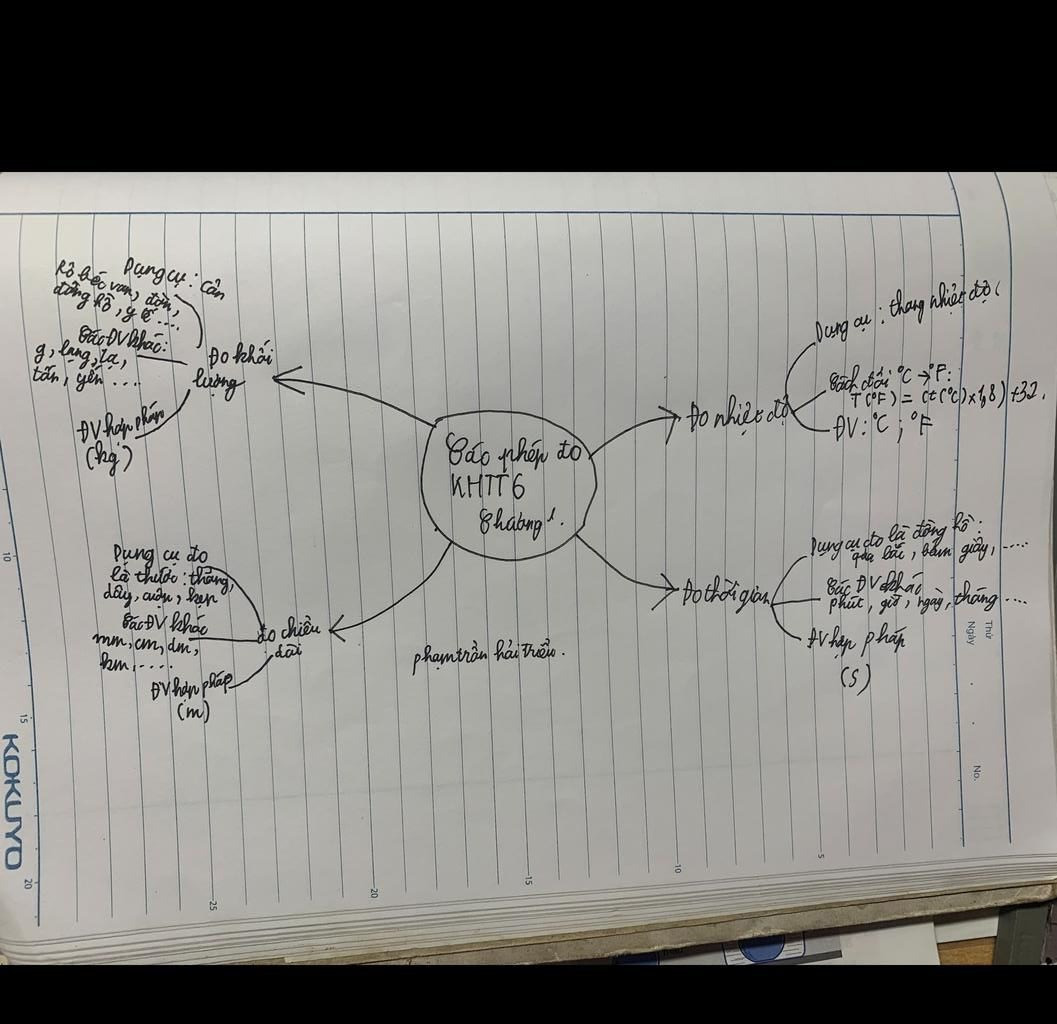 Các phép đo
KHTT6
Chương 1.
Đo khối
lượng
Dụng cụ: Cân
Rô béc van, đòn,
đồng hồ, y tế ....
Các ĐV khác:
g, lạng, tạ,
tấn, yến ...
ĐV hợp pháp
(kg)
Đo nhiệt độ
Dụng cụ: thang nhiệt độ (
Cách đổi °C → °F:
T(°F) = (t(°C)×1,8) +32.
ĐV: °C ; °F
đo chiều
dài
Dụng cụ đo
là thước: thẳng,
dây, cuộn, kẹp
Các ĐV khác
mm, cm, dm,
km, ....
ĐV hợp pháp
(m)
Đo thời gian
Dụng cụ đo là đồng hồ:
quả lắc, bấm giây, ....
Các ĐV khác
phút, giờ, ngày, tháng ...
ĐV hợp pháp
(s)
phạm trần hải triều.
KOKUYO
Thứ
Ngày
No.
5
10
15
20
25
10
15
20